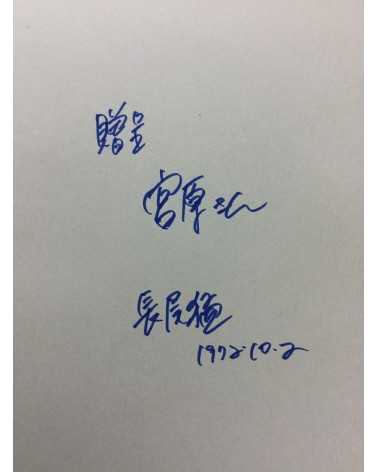 贈呈
宮原さん
長尾猛
1972.10.2